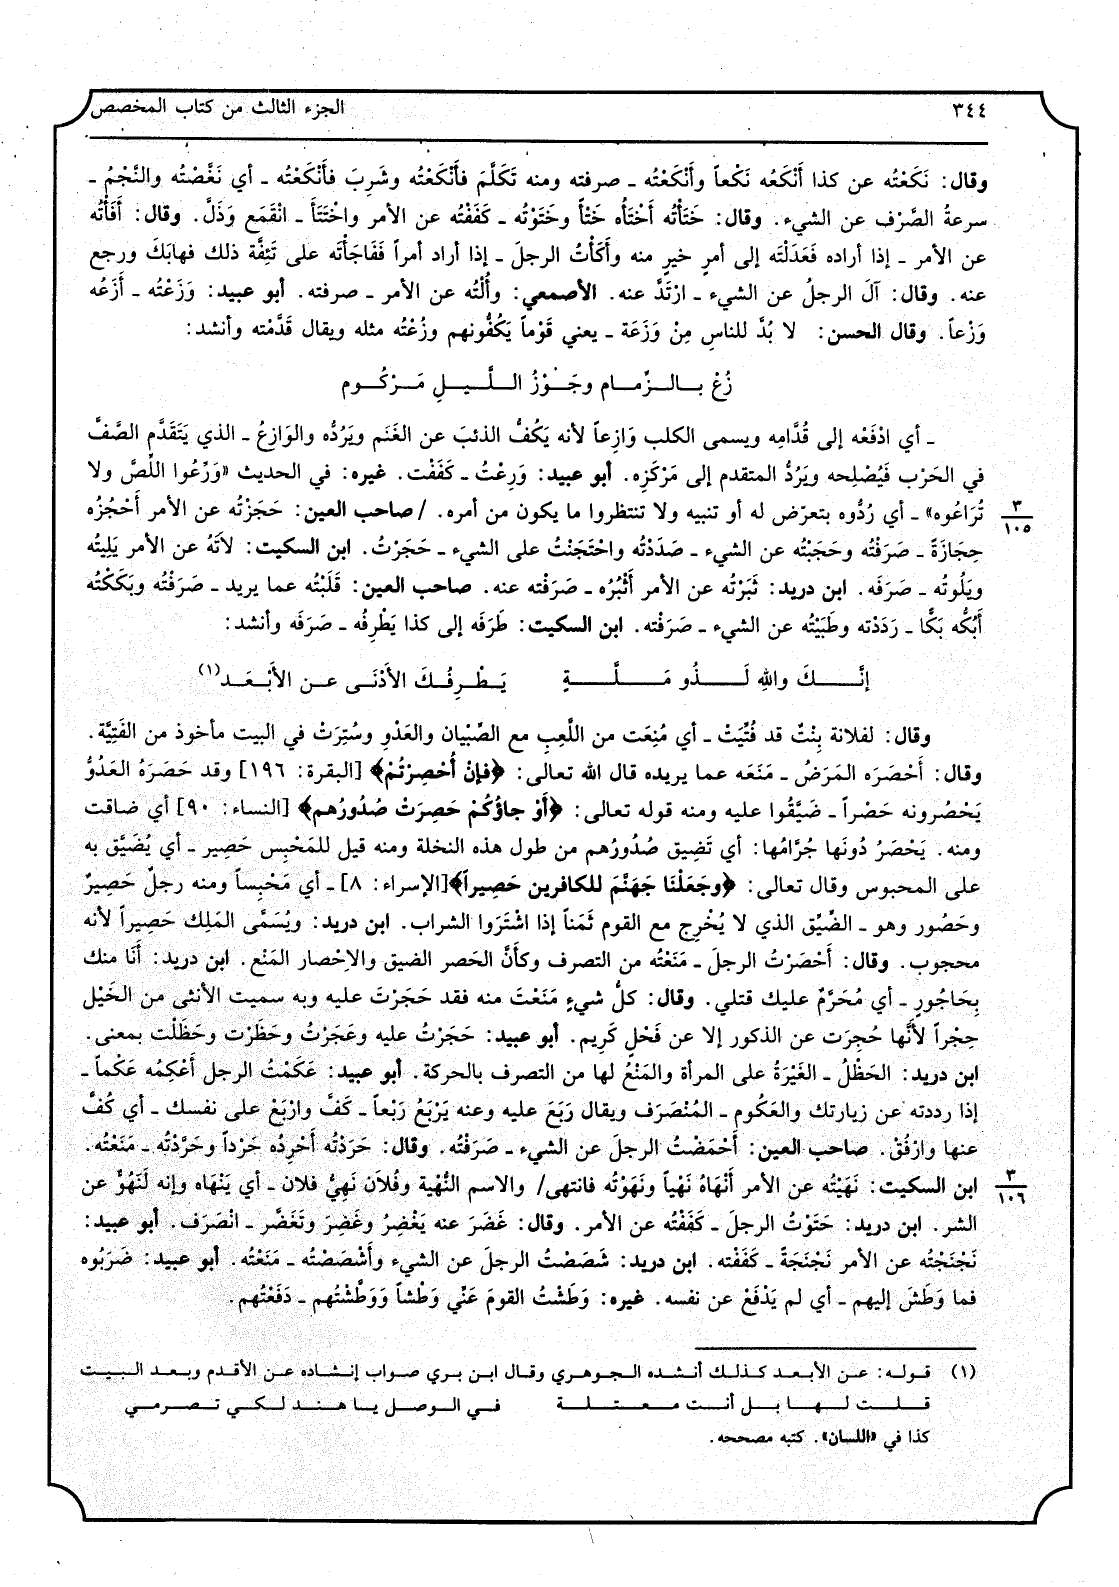 ٣٤٤
الجزء الثالث من كتاب المخصص
وقال: نَكَعْتُه عن كذا أَنْكَعُه نَكْعاً وأَنْكَعْتُه ـ صرفته ومنه تَكَلَّمَ فأَنْكَعْتُه وشَرِبَ فأَنْكَعْتُه ـ أي نَغَّصْتُه والنَّجْمُ ـ
سرعةُ الصَّرْف عن الشيء. وقال: خَتَأْتُه أَخْتَأُه خَتْأً وخَتَوْتُه ـ كَفَفْتُه عن الأمر واخْتَتَأَ ـ انْقَمَع وَذَلَّ. وقال: أَفَأْتُه
عن الأمر ـ إذا أراده فَعَدَلْتَه إلى أمرٍ خيرٍ منه وأَكَأْتُ الرجلَ ـ إذا أراد أمراً فَفَاجَأْتَه على تَئِفَّة ذلك فهابَكَ ورجع
عنه. وقال: آلَ الرجلُ عن الشيء ـ ارْتَدَّ عنه. الأصمعي: وأُلْتُه عن الأمر ـ صرفته. أبو عبيد: وَزَعْتُه ـ أَزَعُه
وَزْعاً. وقال الحسن: لا بُدَّ للناسِ مِنْ وَزَعَة ـ يعني قَوْماً يَكُفُّونهم وزُعْتُه مثله ويقال قَدَّمْته وأنشد:
زُعْ بـالـزِّمـام وجَـوْزُ اللَّـيـلِ مَـرْكُـوم
ـ أي ادْفَعْه إلى قُدَّامِه ويسمى الكلب وَازِعاً لأنه يَكُفُّ الذئبَ عن الغَنَم ويَرُدُّه والوَازِعُ ـ الذي يَتَقَدَّم الصَّفَّ
في الحَرْب فَيُصْلِحه ويَرُدُّ المتقدم إلى مَرْكَزِه. أبو عبيد: وَرِعْتُ ـ كَفَفْت. غيره: في الحديث «وَرِّعُوا اللِّصَّ ولا
تُرَاعُوه» ـ أي رُدُّوه بتعرّض له أو تنبيه ولا تنتظروا ما يكون من أمره. /صاحب العين: حَجَزْتُه عن الأمر أَحْجُزُه
٣
١٠٥
حِجَازَةً ـ صَرَفْتُه وحَجَبْتُه عن الشيء ـ صَدَدْتُه واحْتَجَنْتُ على الشيء ـ حَجَرْتُ. ابن السكيت: لاَتَهُ عن الأمر يَلِيتُه
ويَلُوتُه ـ صَرَفَه. ابن دريد: ثَبَرْتُه عن الأمر أَثْبُرُه ـ صَرَفْته عنه. صاحب العين: قَلَبْتُه عما يريد ـ صَرَفْتُه وبَكَكْتُه
أَبُكُّه بَكًّا ـ رَدَدْته وطَبَيْتُه عن الشيء ـ صَرَفْته. ابن السكيت: طَرَفَه إلى كذا يَطْرِفُه ـ صَرَفَه وأنشد:
إنَّـــكَ واللهِ لَـــذُو مَـــلَّـــةٍ يَـطْـرِفُـكَ الأَدْنَـى عـن الأَبْـعَـد(١)
وقال: لفلانة بِنْتٌ قد فُتِّيَتْ ـ أي مُنِعَت من اللَّعِبِ مع الصِّبْيان والعَدْوِ وسُتِرَتْ في البيت مأخوذ من الفَتِيَّة.
وقال: أَحْصَرَه المَرَضُ ـ مَنَعَه عما يريده قال الله تعالى: ﴿فإنْ أُحْصِرْتُمْ﴾ [البقرة: ١٩٦] وقد حَصَرَهُ العَدُوُّ
يَحْصُرونه حَصْراً ـ ضَيَّقُوا عليه ومنه قوله تعالى: ﴿أَوْ جاؤُكُمْ حَصِرَتْ صُدُورُهم﴾ [النساء: ٩٠] أي ضاقت
ومنه. يَحْصَرُ دُونَها جُرَّامُها: أي تَضِيق صُدُورُهم من طول هذه النخلة ومنه قيل للمَحْبِس حَصِير ـ أي يُضَيَّق به
على المحبوس وقال تعالى: ﴿وجَعَلْنَا جَهَنَّمَ للكافرين حَصِيراً﴾[الإسراء: ٨] ـ أي مَحْبِساً ومنه رجلٌ حَصِيرٌ
وحَصُور وهو ـ الضِّيِّق الذي لا يُخْرِج مع القوم ثَمَناً إذا اشْتَرَوا الشراب. ابن دريد: ويُسَمَّى المَلِك حَصِيراً لأنه
محجوب. وقال: أَحْصَرْتُ الرجلَ ـ مَنَعْتُه من التصرف وكأنَّ الحَصر الضيق والاحْصار المَنْع. ابن دريد: أَنَا منك
بِحَاجُورٍ ـ أي مُحَرَّمٌ عليك قتلي. وقال: كلُّ شيءٍ مَنَعْتَ منه فقد حَجَرْتَ عليه وبه سميت الأنثى من الخَيْل
حِجْراً لأنَّها حُجِرَت عن الذكور إلا عن فَحْلٍ كَرِيم. أبو عبيد: حَجَرْتُ عليه وعَجَرْتُ وحَظَرْت وحَظَلْت بمعنى.
ابن دريد: الحَظْلُ ـ الغَيْرَةُ على المرأة والمَنْعُ لها من التصرف بالحركة. أبو عبيد: عَكَمْتُ الرجل أَعْكِمُه عَكْماً ـ
إذا رددته عن زيارتك والعَكُوم ـ المُنْصَرَف ويقال رَبَعَ عليه وعنه يَرْبَعُ رَبْعاً ـ كَفَّ وارْبَعْ على نفسك ـ أي كُفَّ
عنها وارْفُقْ. صاحب العين: أَحْمَضْتُ الرجلَ عن الشيء ـ صَرَفْتُه. وقال: حَرَدْتُه أَحْرِدُه حَرْداً وحَرَّدْتُه ـ مَنَعْتُه.
ابن السكيت: نَهَيْتُه عن الأمر أَنْهَاهُ نَهْياً ونَهَوْتُه فانتهى/ والاسم النُّهْية وفُلاَن نَهِيُّ فلان ـ أي يَنْهَاه وإنه لَنَهُوٌّ عن
٣
١٠٦
الشر. ابن دريد: حَتَوْتُ الرجلَ ـ كَفَفْتُه عن الأمر. وقال: غَضَرَ عنه يَغْضِرُ وغَضِرَ وتَغَضَّر ـ انْصَرَف. أبو عبيد:
نَجْنَجْتُه عن الأمر نَجْنَجَةً ـ كَفَفْته. ابن دريد: شَصَصْتُ الرجلَ عن الشيء وأَشْصَصْتُه ـ مَنَعْتُه. أبو عبيد: ضَرَبُوه
فما وَطَشَ إليهم ـ أي لم يَدْفَعْ عن نفسه. غيره: وَطَشْتُ القومَ عَنِّي وَطْشاً وَوَطَّشْتُهم ـ دَفَعْتُهم.
(١) قوله: عن الأبعد كذلك أنشده الجوهري وقال ابن بري صواب إنشاده عن الأقدم وبعد البيت
قـلـت لـهـا بـل أنـت مـعـتـلـة في الوصل يا هـنـد لـكـي تـصـرمـي
كذا في «اللسان». كتبه مصححه.